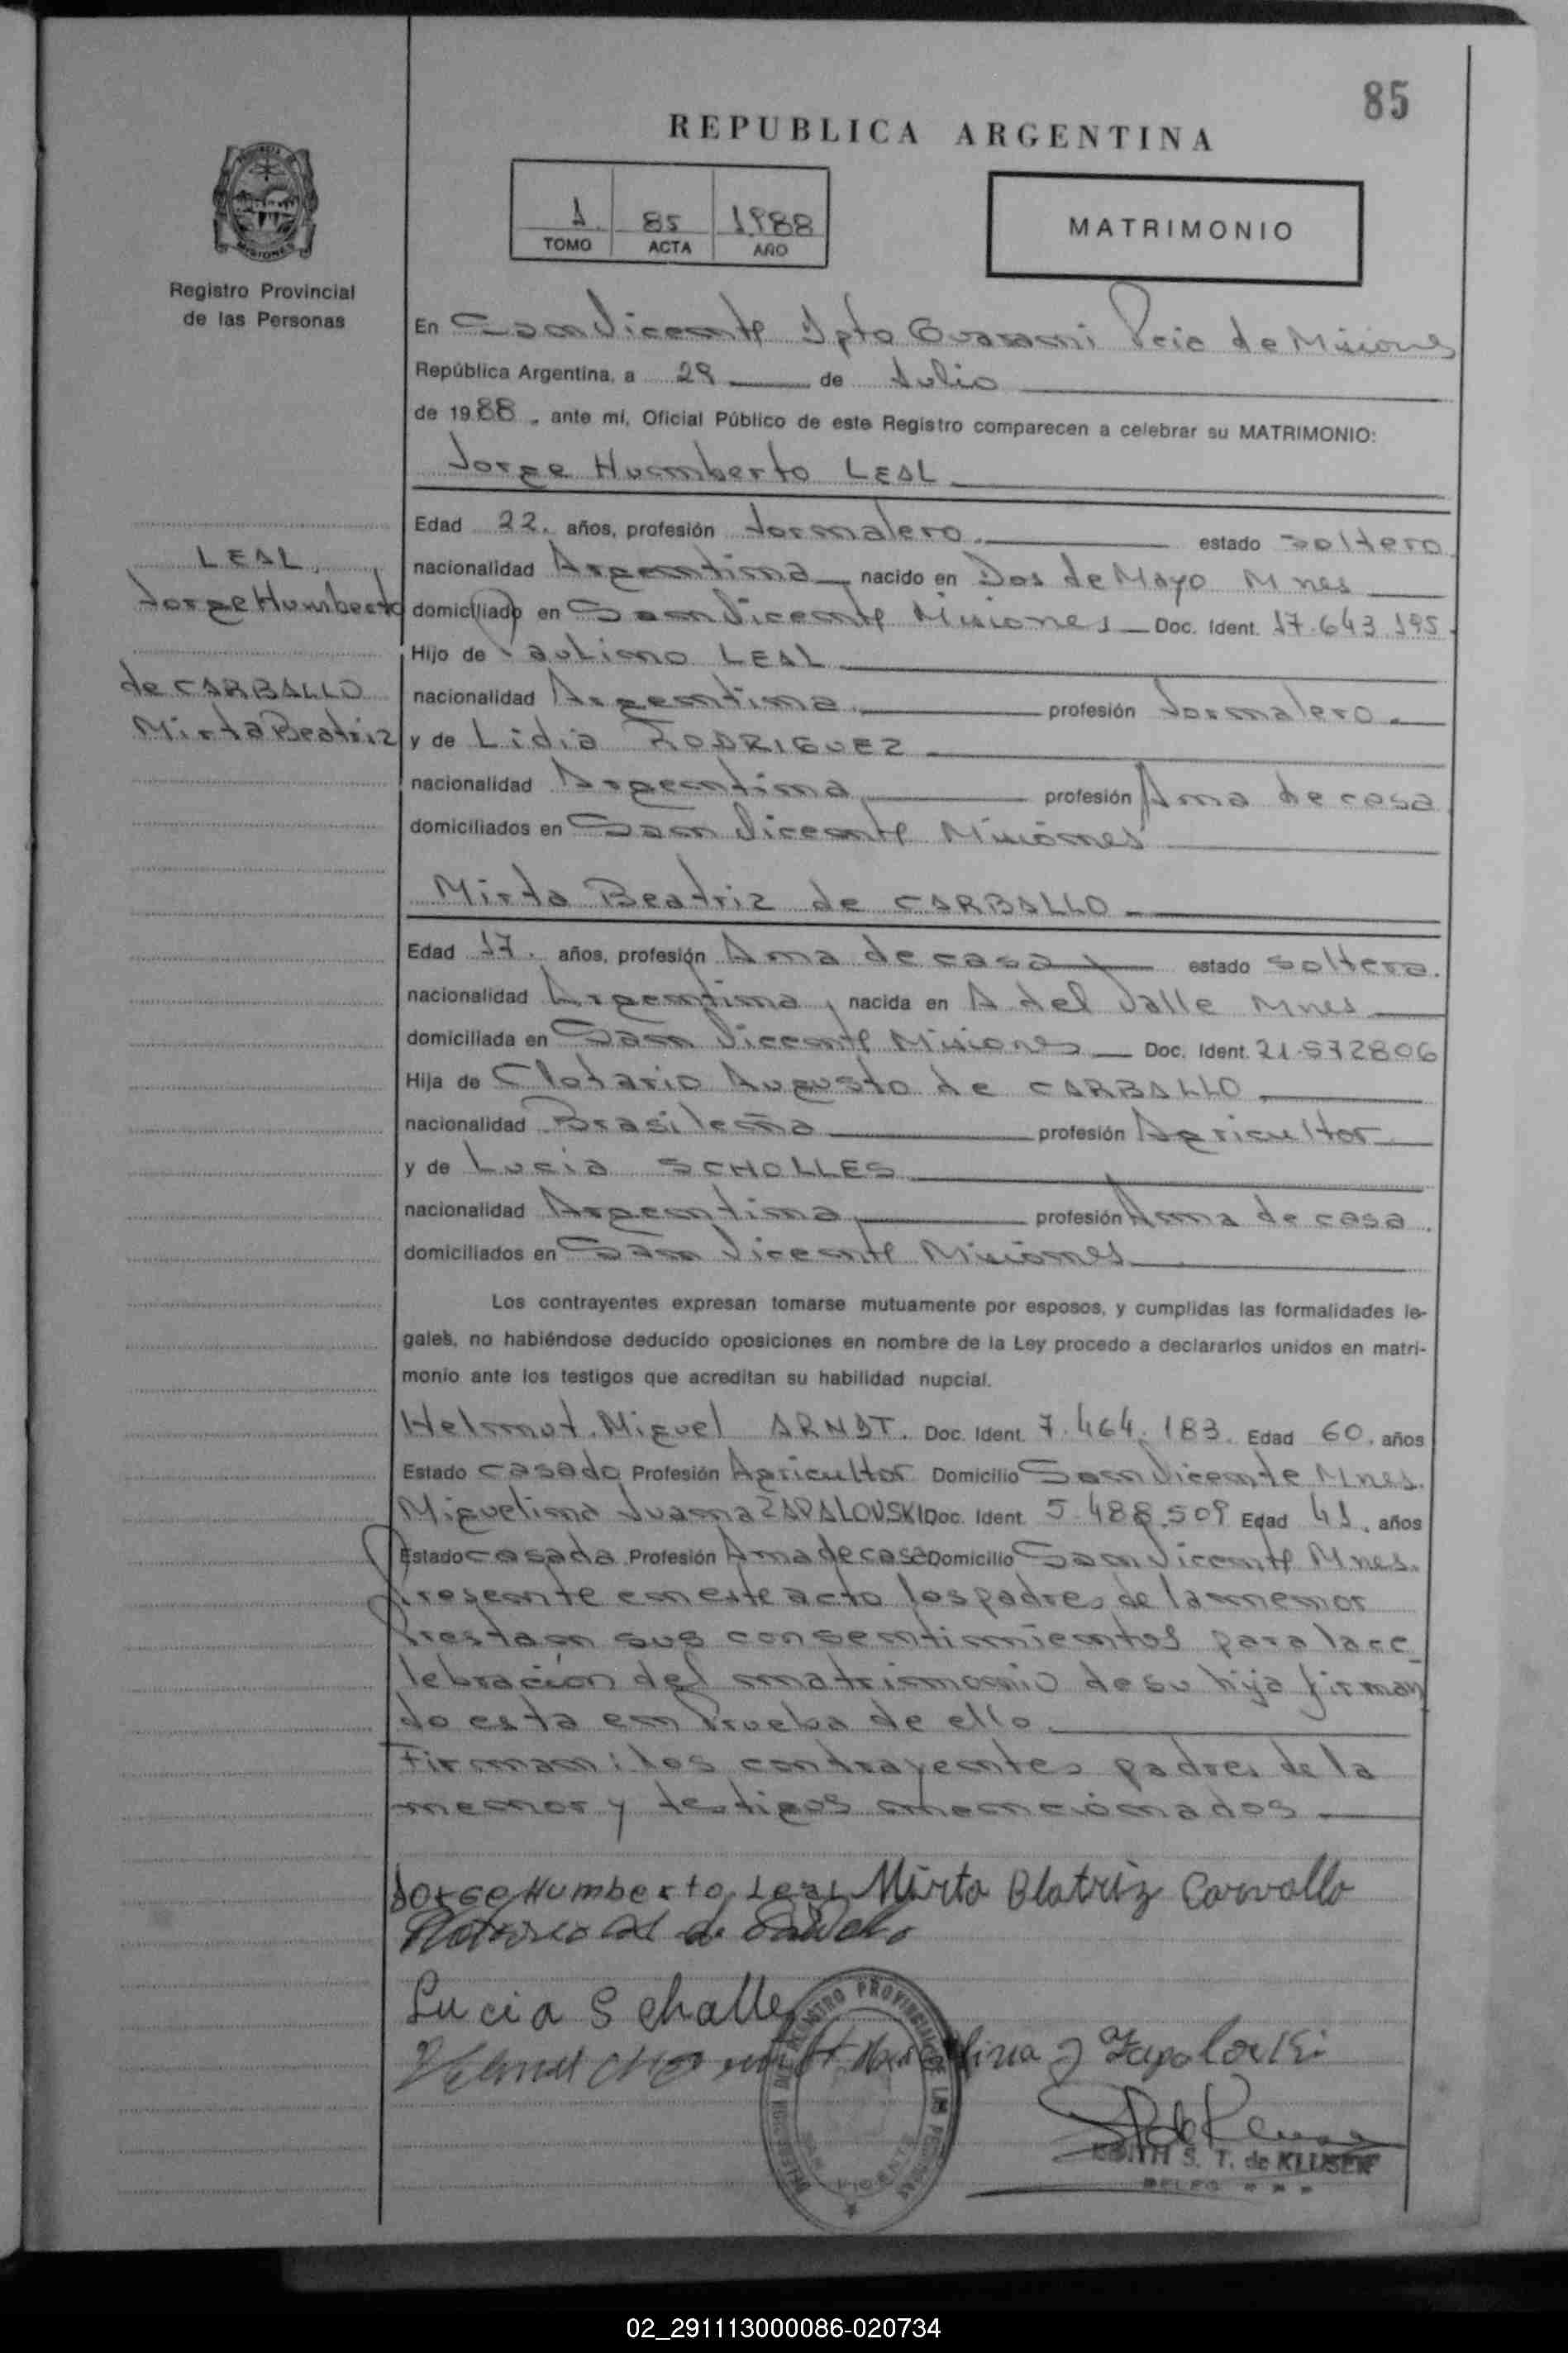 85
REPUBLICA ARGENTINA
1 85 1988
TOMO ACTA AÑO
MATRIMONIO
Registro Provincial
de las Personas
En San Vicente Dpto Guarani Pcia de Misiones
República Argentina, a 29 de Julio
de 1988, ante mí, Oficial Público de este Registro comparecen a celebrar su MATRIMONIO:
Jorge Humberto LEAL
Edad 22. años, profesión Jornalero. estado soltero.
nacionalidad Argentina, nacido en Dos de Mayo Mnes
domiciliado en San Vicente Misiones Doc. Ident. 17.643.195.
Hijo de Paulino LEAL
nacionalidad Argentina. profesión Jornalero.
y de Lidia RODRIGUEZ
nacionalidad Argentina profesión Ama de casa
domiciliados en San Vicente Misiones
LEAL,
Jorge Humberto
de CARBALLO
Mirta Beatriz
Mirta Beatriz de CARBALLO
Edad 17. años, profesión Ama de casa estado soltera.
nacionalidad Argentina, nacida en A del Valle Mnes
domiciliada en San Vicente Misiones Doc. Ident. 21.572806
Hija de Clotario Augusto de CARBALLO.
nacionalidad Brasileña profesión Agricultor
y de Lucia SCHOLLES
nacionalidad Argentina profesión Ama de casa.
domiciliados en San Vicente Misiones
Los contrayentes expresan tomarse mutuamente por esposos, y cumplidas las formalidades le-
gales, no habiéndose deducido oposiciones en nombre de la Ley procedo a declararlos unidos en matri-
monio ante los testigos que acreditan su habilidad nupcial.
Helmut Miguel ARNDT. Doc. Ident. 7.464.183. Edad 60. años
Estado casado Profesión Agricultor Domicilio San Vicente Mnes.
Miguelina Juana ZAPALOVSKI Doc. Ident. 5.488.509 Edad 41. años
Estado casada Profesión Ama de casa Domicilio San Vicente Mnes.
Presente en este acto los padres de la menor
Prestan sus consentimientos para la ce
lebración del matrimonio de su hija firman
do esta en Prueba de ello.
Firman: los contrayentes padres de la
menor y testigos mencionados
Jorge Humberto Leal Mirta Beatriz Carvallo
Lucia Scholles
Zapalovski
REGISTRO PROVINCIAL DE LAS PERSONAS
SAN VICENTE
EDITH S. T. de KLUSER
02_291113000086-020734